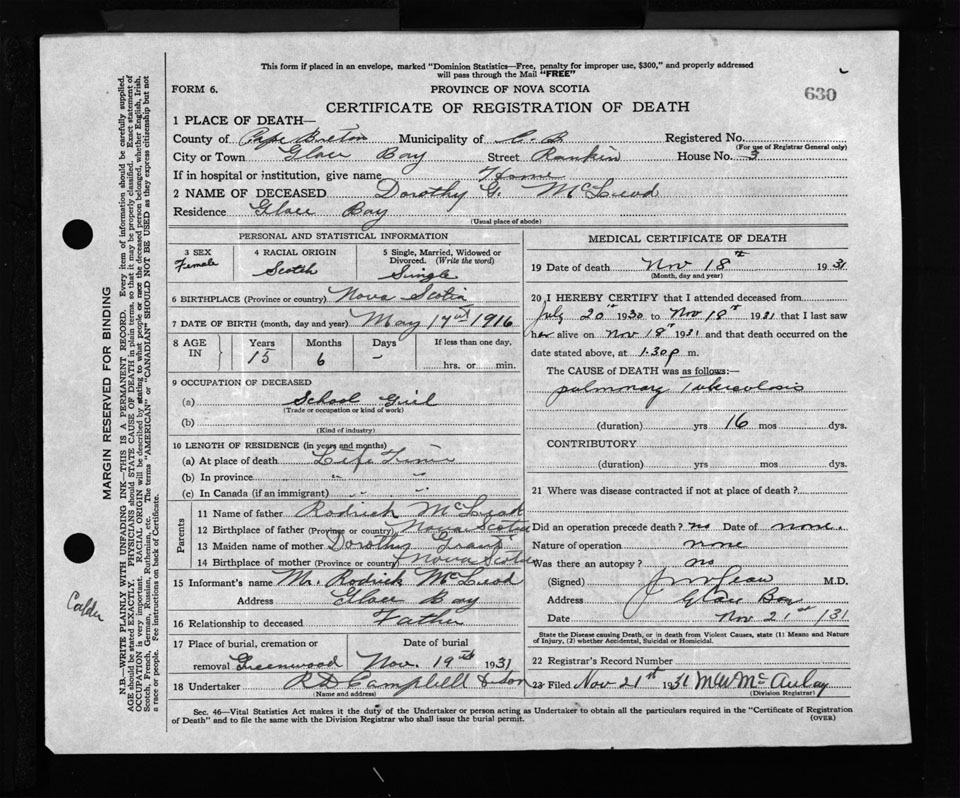 This form if placed in an envelope, marked "Dominion Statistics—Free, penalty for improper use, $300," and properly addressed
will pass through the Mail "FREE"
FORM 6.
PROVINCE OF NOVA SCOTIA
630
CERTIFICATE OF REGISTRATION OF DEATH
1 PLACE OF DEATH—
County of Cape Breton Municipality of C. B. Registered No.
(For use of Registrar General only)
City or Town Glace Bay Street Rankin House No. 3
If in hospital or institution, give name Home
2 NAME OF DECEASED Dorothy G. McLeod
Residence Glace Bay
(Usual place of abode)
PERSONAL AND STATISTICAL INFORMATION
3 SEX Female
4 RACIAL ORIGIN Scotch
5 Single, Married, Widowed or Divorced. (Write the word) Single
6 BIRTHPLACE (Province or country) Nova Scotia
7 DATE OF BIRTH (month, day and year) May 17th 1916
8 AGE IN Years 15 Months 6 Days - If less than one day, hrs. or min.
9 OCCUPATION OF DECEASED
(a) School Girl
(Trade or occupation or kind of work)
(b)
(Kind of industry)
10 LENGTH OF RESIDENCE (in years and months)
(a) At place of death Life Time
(b) In province " "
(c) In Canada (if an immigrant) " "
Parents
11 Name of father Rodrick McLeod
12 Birthplace of father (Province or country) Nova Scotia
13 Maiden name of mother Dorothy Grant
14 Birthplace of mother (Province or country) Nova Scotia
15 Informant's name Mr. Rodrick McLeod
Address Glace Bay
16 Relationship to deceased Father
17 Place of burial, cremation or Date of burial
removal Greenwood Nov. 19th 1931
18 Undertaker R D Campbell & Son
(Name and address)
MEDICAL CERTIFICATE OF DEATH
19 Date of death Nov 18th 1931
(Month, day and year)
20 I HEREBY CERTIFY that I attended deceased from
July 20th 1930 to Nov 18th 1931 that I last saw
her alive on Nov 18th 1931 and that death occurred on the
date stated above, at 1.30 p m.
The CAUSE of DEATH was as follows:—
pulmonary Tuberculosis
(duration) yrs 16 mos dys.
CONTRIBUTORY
(duration) yrs. mos. dys.
21 Where was disease contracted if not at place of death?
Did an operation precede death? no Date of none.
Nature of operation none
Was there an autopsy? no
(Signed) M.D.
Address Glace Bay
Date Nov 21st /31
State the Disease causing Death, or in death from Violent Causes, state (1) Means and Nature
of Injury, (2) whether Accidental, Suicidal or Homicidal.
22 Registrar's Record Number
23 Filed Nov 21st 1931 M W McAulay
(Division Registrar)
Sec. 46—Vital Statistics Act makes it the duty of the Undertaker or person acting as Undertaker to obtain all the particulars required in the "Certificate of Registration
of Death" and to file the same with the Division Registrar who shall issue the burial permit.
(OVER)
MARGIN RESERVED FOR BINDING
N.B.—WRITE PLAINLY WITH UNFADING INK—THIS IS A PERMANENT RECORD. Every item of information should be carefully supplied.
AGE should be stated EXACTLY. PHYSICIANS should STATE CAUSE OF DEATH in plain terms, so that it may be properly classified. Exact statement of
OCCUPATION is very important. RACIAL ORIGIN will be described by stating to what people or race the deceased person belonged, whether English, Irish,
Scotch, French, German, Russian, Ruthenian, etc. The terms "AMERICAN" or "CANADIAN" SHOULD NOT BE USED as they express citizenship but not
a race or people. Fee instructions on back of Certificate.
Calder